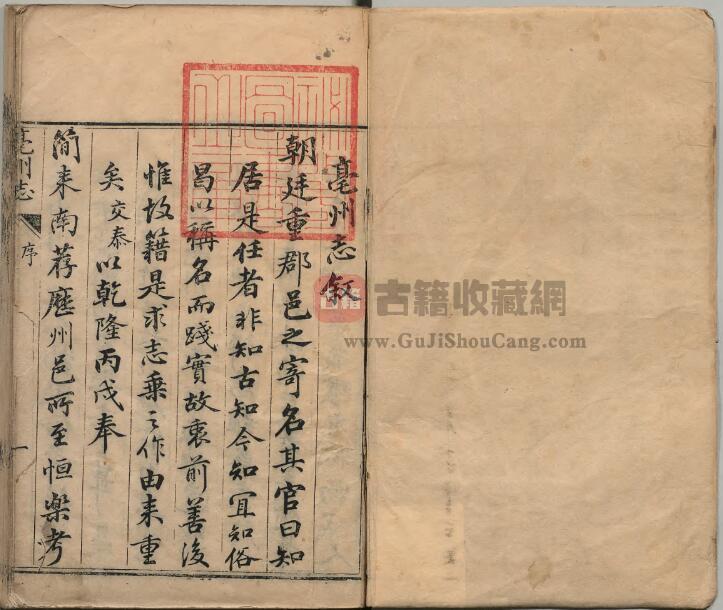 亳州志叙
朝廷重郡邑之寄名其官曰知
居是任者非知古知今知宜知俗
曷以稱名而踐實故衷前善後
惟故籍是求志乗之作由来重
矣交泰以乾隆丙戌奉
簡来南荐歷州邑所至恒樂考
亳州志
序
一
古籍
古籍收藏網
www.GuJiShouCang.com